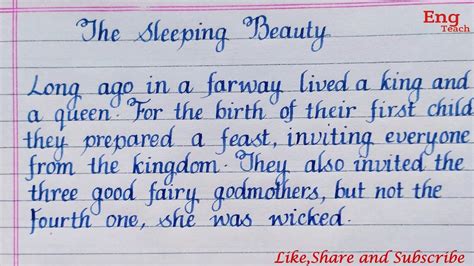 Eng
Teach
The Sleeping Beauty
Long ago in a farway lived a king and
a queen. For the birth of their first child
they prepared a feast, inviting everyone
from the kingdom. They also invited the
three good fairy godmothers, but not the
fourth one, she was wicked.
Like,Share and Subscribe